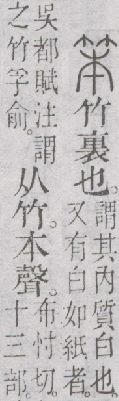 笨竹裏也。謂其內質白也。
又有白如紙者。
吳都賦注謂
之竹孚俞。
从竹。本聲。布忖切。
十三部。